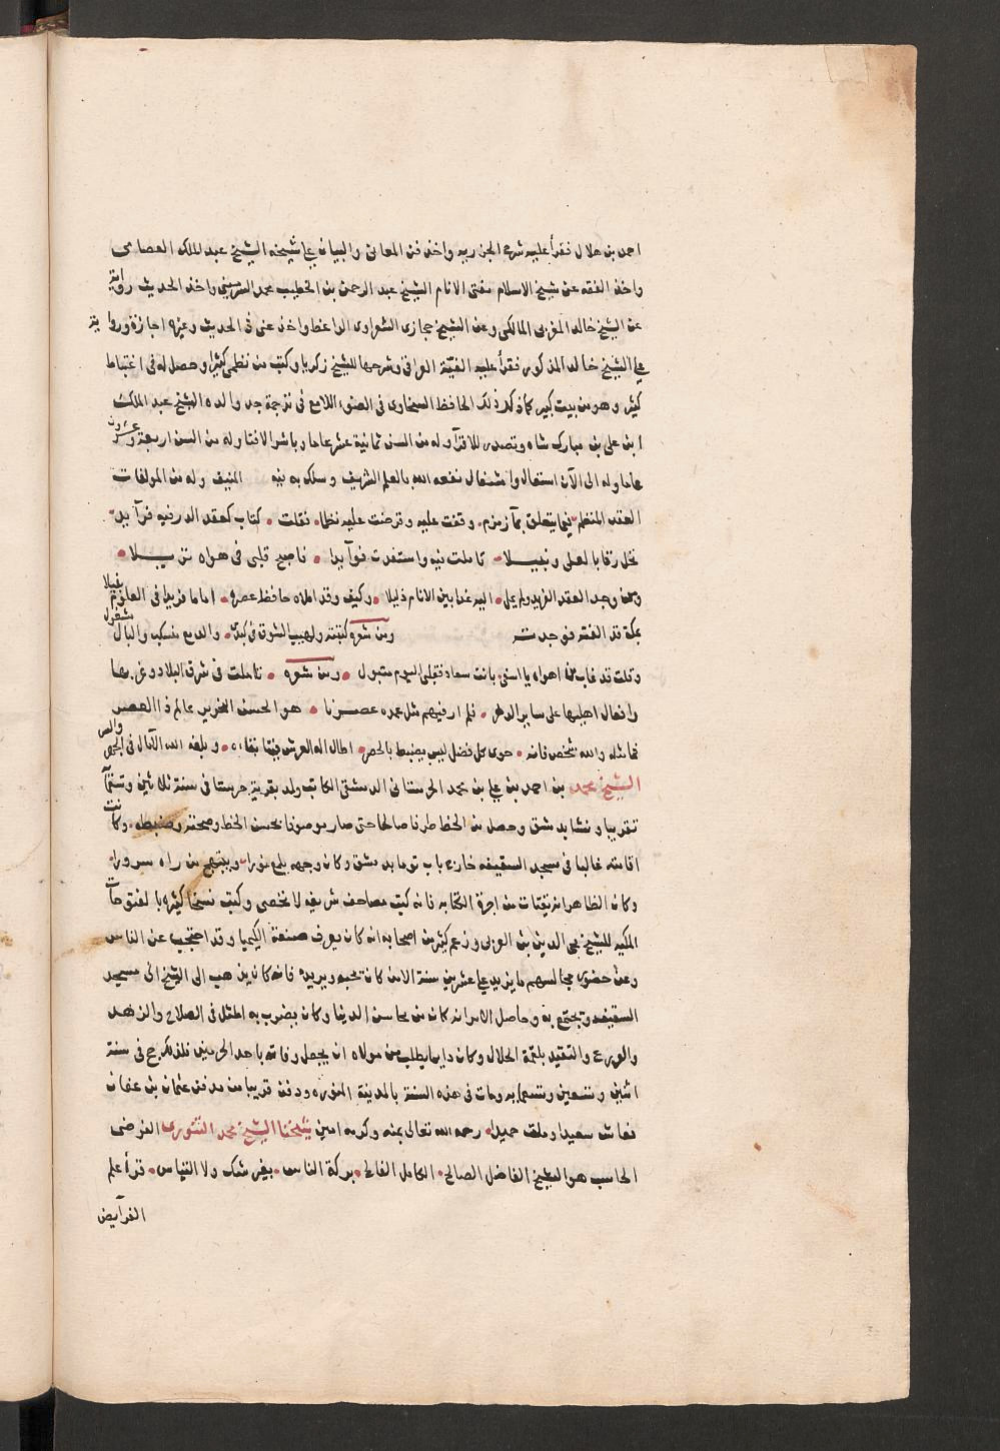 احمد بن هلال فقرأ عليه شرح الجزريه واخذ فن المعاني والبيان علي شيخه الشيخ عبد الملك العصامي
واخذ الفقه عن شيخ الاسلام مفتى الانام الشيخ عبد الرحمن بن الخطيب محمد الشربيني واخذ الحديث رواية
عن الشيخ خالد المغربي المالكي وعن الشيخ حجازى الشعراوى الواعظ واخذ عني في الحديث وغيره اجازة ورواية
علي الشيخ خالد المذكور فقرأ عليه الفية العراقي وشرحها للشيخ زكريا وكتب من نظمي كثيرا وحصل له في اغتباط
كثير وهو من بيت كبير كما ذكر ذلك الحافظ السخاوى في الضوء اللامع في ترجمة جد والده الشيخ عبد الملك
ابن على بن مبارك شاه وتصدر للاقرآ وله من السن ثمانية عشر عاما وباشر الافتا وله من السن اربعة وعشرون
عاما وله الى الآن استعمال واشتغال نفعه الله بالعلم الشريف وسلك به المنيف وله من المولفات
العقد المنظم فيما يتعلق بمآ زمزم وقفت عليه وقرضت عليه نظما فقلت كتاب كعقد الدر فيه فرآيد
تاملت فيه واستفدت فوآيدا فاصبح قلبى في هواه
ومن وجد العقد الفريد ولم يمل اليه غدا بين الانام ذليلا وكيف وقد املاه حافظ عصره اماما فريدا في العلوم
بمكة قد الفته فوجدته ومن شعره كتبته ولهيب الشوق في كبدى والدمع منسكب والبال مشغول
وقلت قد غاب من اهواه يا اسفي بانت سعاد فقلبى اليوم متبول ومن شعره تاملت في شرق البلاد وغربها
وافعال اهليها على ساير الدهر فلم ار فيهم مثل عمدة عصرنا هو الحسن النحرير عالم ذا العصر
فما مثله والله شخص فانه حوى كل فضل ليس يضبط بالحصر اطال اله العرش فينا بقاءه وبلغه الله الآمال في الجهر والسر
الشيخ محمد بن احمد بن علي بن محمد الحرستاني الدمشقي الكاتب ولد بقرية حرستا في سنة ثلاثين وتسعمآية
تقريبا ونشا بدمشق وحصل من الخط طرفا صالحا حتى صار موصوفا بحسن الخط وصحته وضبطه وكانت
اقامته غالبا في مسجد السقيفه خارج باب توما بدمشق وكان وجهه يلمع نورا ويبتهج من راه سرورا
وكان الظاهر انه يقتات من اجرة الكتابه فانه كتب مصاحف شريفه لا تحصى وكتب نسخا كثيره بالفتوحات
المكيه للشيخ محي الدين بن العربى وزعم كثير من اصحابه انه كان يعرف صنعة الكيميا وقد احتجب عن الناس
وعن حضور مجالسهم ما يزيد علي عشرين سنة الا من كان يحبه ويريده فانه كان يذهب الى الشيخ الى مسجد
السقيفه ويجتمع به وحاصل الامر انه كان من محاسن الدنيا وكان يضرب به المثل في الصلاح والزهد
والورع والتقيد بلقمة الحلال وكان دايما يطلب من مولاه ان يجعل وفاته باحد الحرمين فلذلك حج في سنة
اثنين وتسعين وتسعمايه ومات في هذه السنة بالمدينة المنوره ودفن قريبا من مدفن عثمان بن عفان
فعاش سعيدا ومات حميدا رحمه الله تعالى بمنه وكرمه امين شيخنا الشيخ محمد التنورى الفرضى
الحاسب هو الشيخ الفاضل الصالح الكامل الفالح بركة الناس بغير شك ولا التباس قرأ علم
الفرآيض